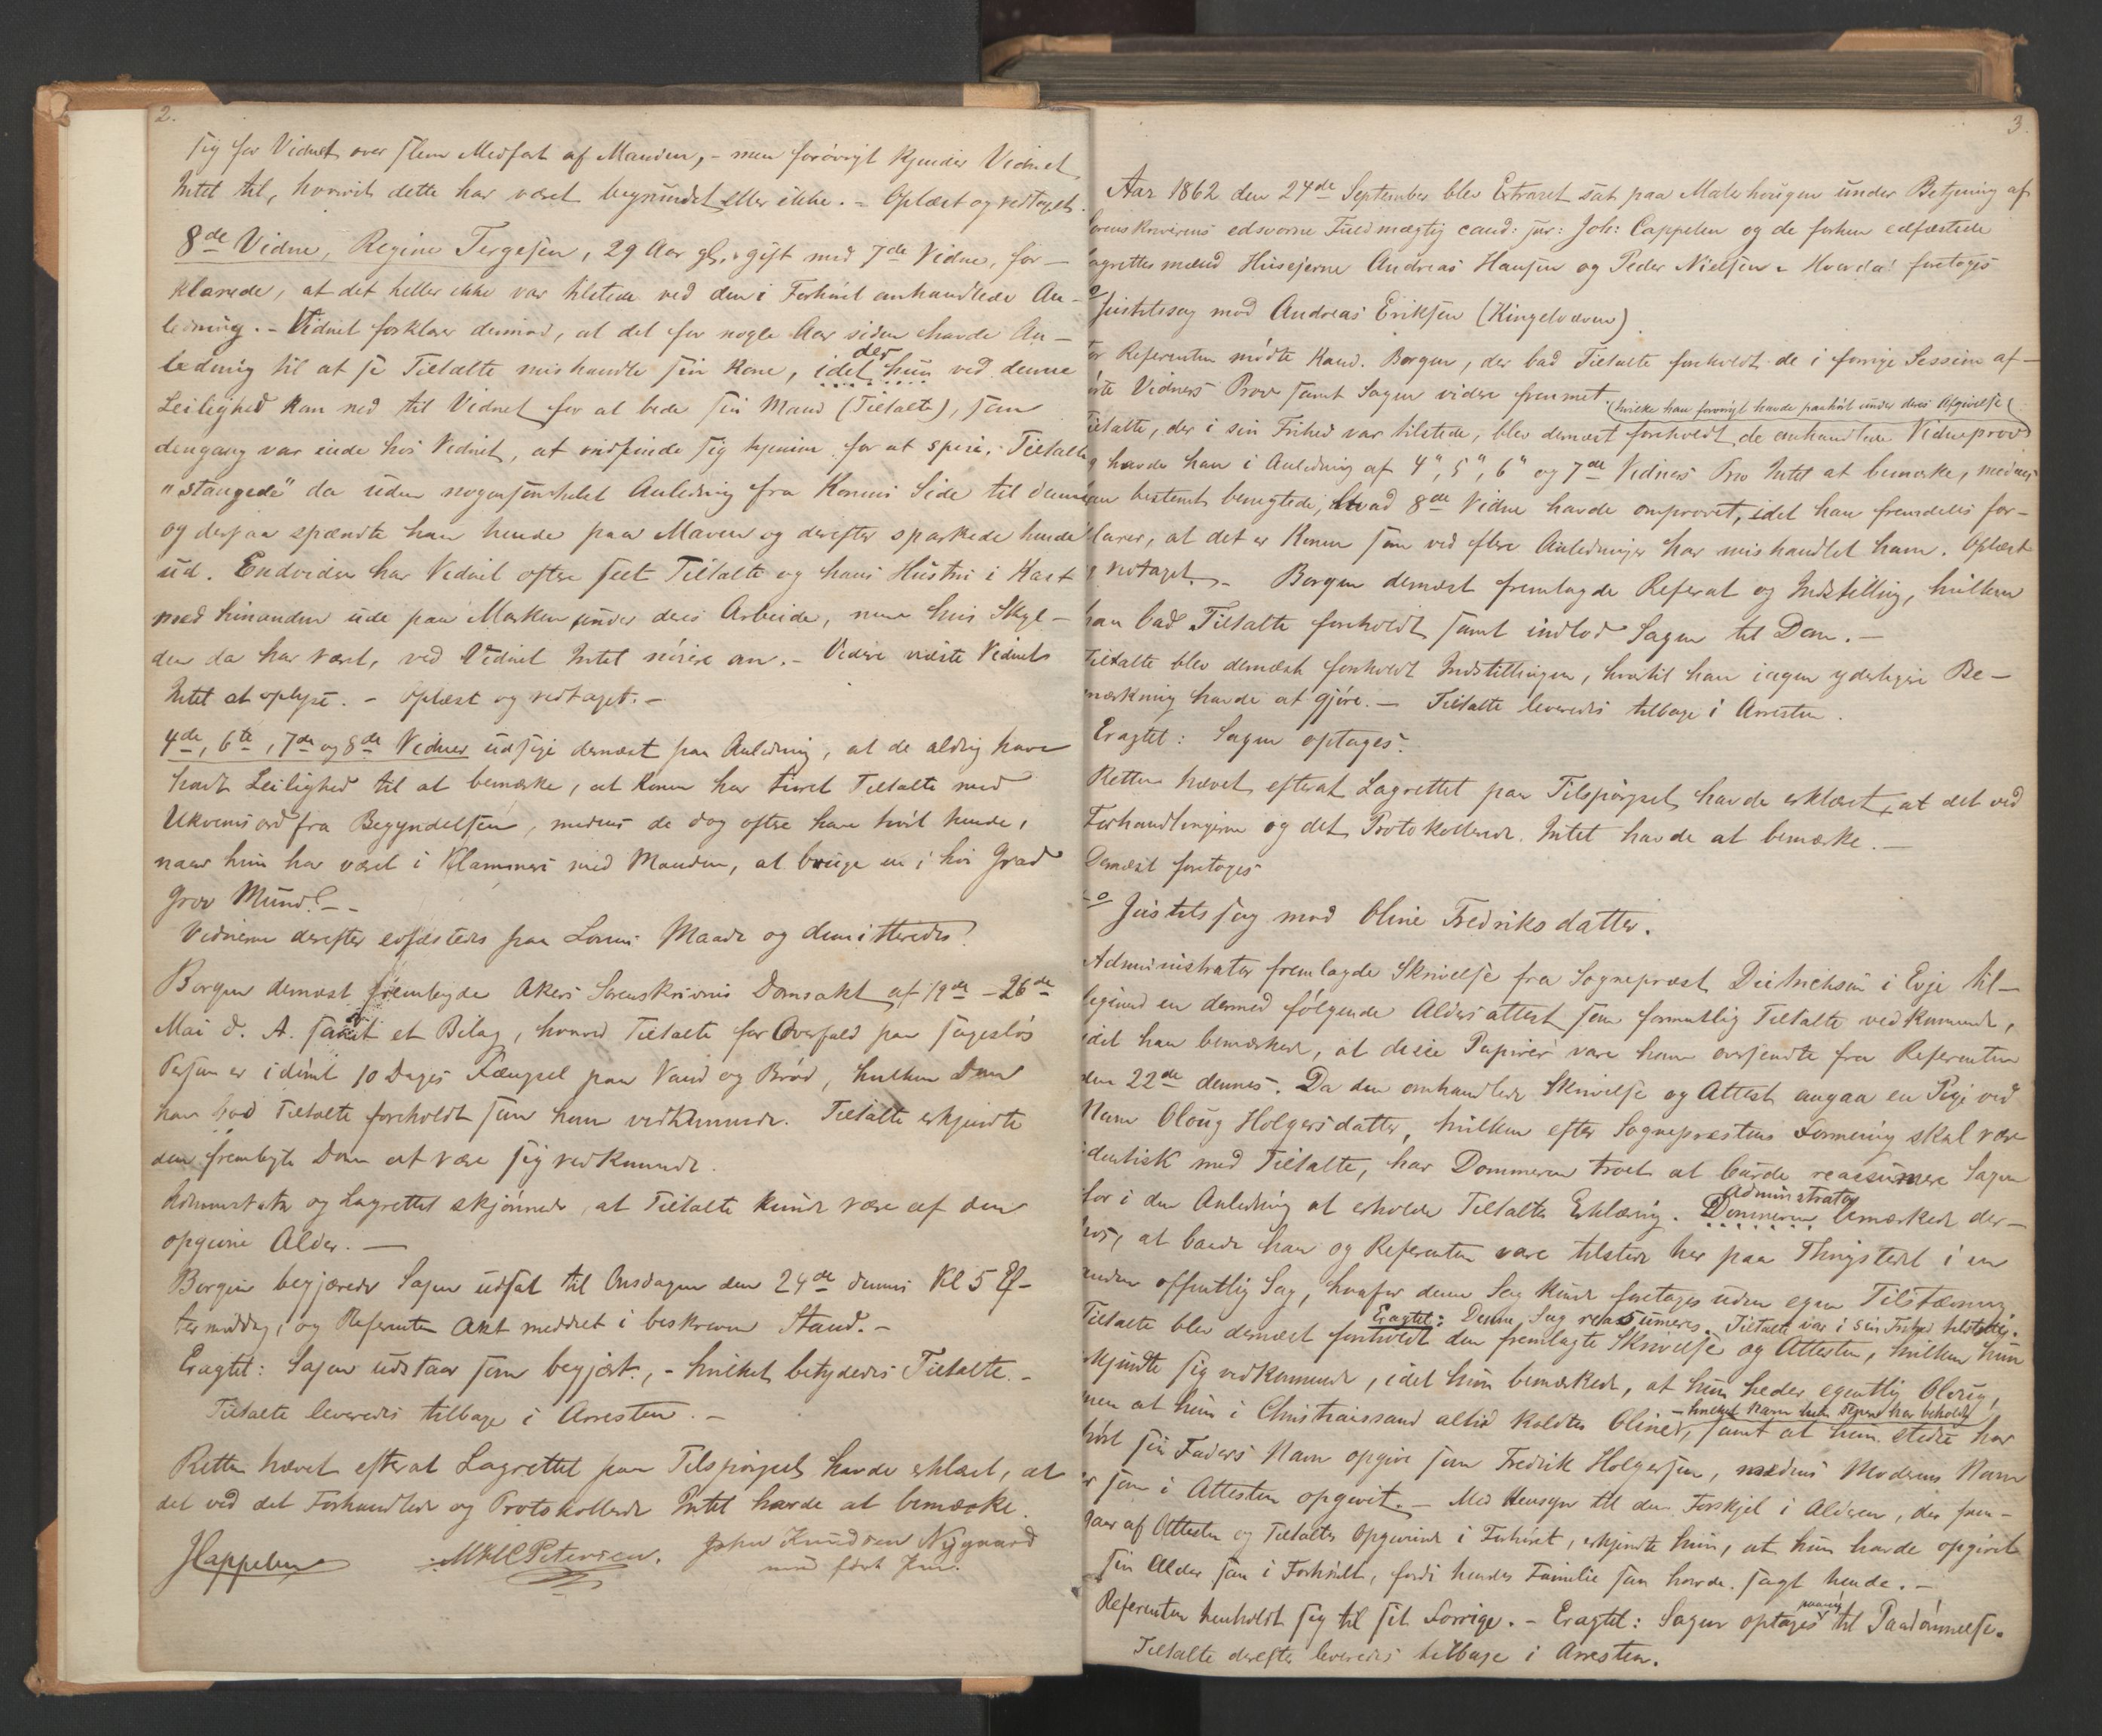 2.
sig for Vidnet over slem Medfart af Manden, - men forøvrigt kjender Vidnet
Intet til, hvorvidt dette har været begrundet eller ikke. - Oplæst og vedtaget.
8de Vidne, Regine Tergesen, 29 Aar gl., gift med 7de Vidne, for-
klarede, at det heller ikke var tilstede ved den i Forhøret omhandlede An-
ledning. - Vidnet forklarer derimod, at det for nogle Aar siden havde An-
ledning til at se Tiltalte mishandle sin Kone, idet hun der ved denne
Leilighed kom ned til Vidnet for at bede sin Mand (Tiltalte), som
dengang var inde hos Vidnet, at indfinde sig hjemme for at spise. Tiltalte
"stangede" da uden nogensomhelst Anledning fra Konens Side til denne
og derpaa spændte han hende paa Maven og derefter sparkede hende
ud. Endvidere har Vidnet oftere seet Tiltalte og hans Hustru i Kast
med hinanden ude paa Marken under deres Arbeide, men hvis Skyl-
den da har været, ved Vidnet Intet nøiere om. - Videre vidste Vidnet
Intet at oplyse. - Oplæst og vedtaget. -
4de, 6te, 7de og 8de Vidner udsige dernæst paa Anledning, at de aldrig have
havt Leilighed til at bemærke, at Konen har tirret Tiltalte med
Ukvemsord fra Begyndelsen, medens de dog oftere have hørt hende,
naar hun har været i Klammeri med Manden, at bruge en i høi Grad
grov Mund. -
Vidnerne derefter edfæstedes paa Lovens Maade og demitteredes.
Borgen dernæst fremlagde Akers Sorenskriveris Domsakt af 19de - 26de
Mai d. A. samt et Bilag, hvorved Tiltalte for Overfald paa sagesløs
Person er idømt 10 Dages Fængsel paa Vand og Brød, hvilken Dom
han bad Tiltalte foreholdt som ham vedkommende. Tiltalte erkjendte
den fremlagte Dom at være sig vedkommende.
Administrator og Lagrettet skjønnede, at Tiltalte kunde være af den
opgivne Alder. -
Borgen begjærede Sagen udsat til Onsdagen den 24de dennes Kl 5 Ef-
termiddag, og Referenten Akt meddelt i beskreven Stand. -
Eragtet: Sagen udstaar som begjært, - hvilket betydedes Tiltalte. -
Tiltalte leveredes tilbage i Arresten. -
Retten hævet efterat Lagrettet paa Tilspørgsel havde erklært, at
det ved det Forhandlede og Protokollerede Intet havde at bemærke.
JCappelen Petersen. John Knudsen Nygaard
med ført Pen.
3.
Aar 1862 den 24de September blev Extraret sat paa Malerhaugen under Betjening af
Sorenskriverens edsvorne Fuldmægtig cand: jur: Joh: Cappelen og de forhen edfæstede
Lagrettesmænd Huseierne Andreas Hansen og Peder Nielsen - Hvorda: foretoges
Justitssag mod Andreas Eriksen (Kingelvæven).
For Referenten mødte Kand. Borgen, der bad Tiltalte foreholdt de i forrige Session af-
hørte Vidners Prov samt Sagen videre fremmet.
(hvilke han forøvrigt havde paahørt under deres Afgivelse)
Tiltalte, der i sin Frihed var tilstede, blev dernæst foreholdt de omhandlede Vidneprov
og havde han i Anledning af 4", 5", 6" og 7de Vidners Prov Intet at bemærke, medens
han bestemt benegtede, hvad 8de Vidne havde omprovet, idet han fremdeles for-
klarer, at det er Konen som ved flere Anledninger har mishandlet ham. Oplæst
og vedtaget. - Borgen dernæst fremlagde Referat og Indstilling, hvilken
han bad Tiltalte foreholdt samt indlod Sagen til Dom. -
Tiltalte blev dernæst foreholdt Indstillingen, hvortil han ingen yderligere Be-
mærkning havde at gjøre. - Tiltalte leveredes tilbage i Arresten.
Eragtet: Sagen optages.
Retten hævet, efterat Lagrettet paa Tilspørgsel havde erklæret, at det ved
Forhandlingerne og det Protokollerede Intet havde at bemærke. -
Dernæst foretoges
Justitssag mod Oline Fredriksdatter.
Administrator fremlagde Skrivelse fra Sogneprest Dietrichson i Evje til-
ligemed en dermed følgende Aldersattest som formentlig Tiltalte vedkommende,
idet han bemærkede, at disse Papirer vare ham oversendte fra Referenten
den 22de dennes. Da den omhandlede Skrivelse og Attest angaa en Pige ved
Navn Oloug Holgersdatter, hvilken efter Sogneprestens Formening skal være
identisk med Tiltalte, har Dommeren troet at burde reassumere Sagen
for i den Anledning at erholde Tiltaltes Erklæring. Dommeren Administrator bemærkede der-
hos, at baade han og Referenten vare tilstede her paa Thingstedet i en
anden offentlig Sag, hvorfor denne Sag kunde foretages uden egen Tilstævning.
Eragtet: Denne Sag reassumeres. Tiltalte var i sin Frihed tilstede.
Tiltalte blev dernæst foreholdt den fremlagte Skrivelse og Attesten, hvilken hun
erkjendte sig vedkommende, idet hun bemærkede, at hun heder egentlig Oloug,
men at hun i Christianssand altid kaldtes Oline, - hvilket Navn hun siden har beholdt, samt at hun stedse har
hørt sin Faders Navn opgive som Fredrik Holgersen, medens Moderens Navn
er som i Attesten opgivet. - Med Hensyn til den Forskjel i Alderen, der frem-
gaar af Attesten og Tiltaltes Opgivende i Forhøret, erkjendte hun, at hun havde opgivet
sin Alder som i Forhøret, fordi hendes Familie saa havde sagt hende. -
Referenten henholdt sig til sit Forrige. - Eragtet: Sagen optages paany til Paadømmelse.
Tiltalte derefter leveredes tilbage i Arresten.